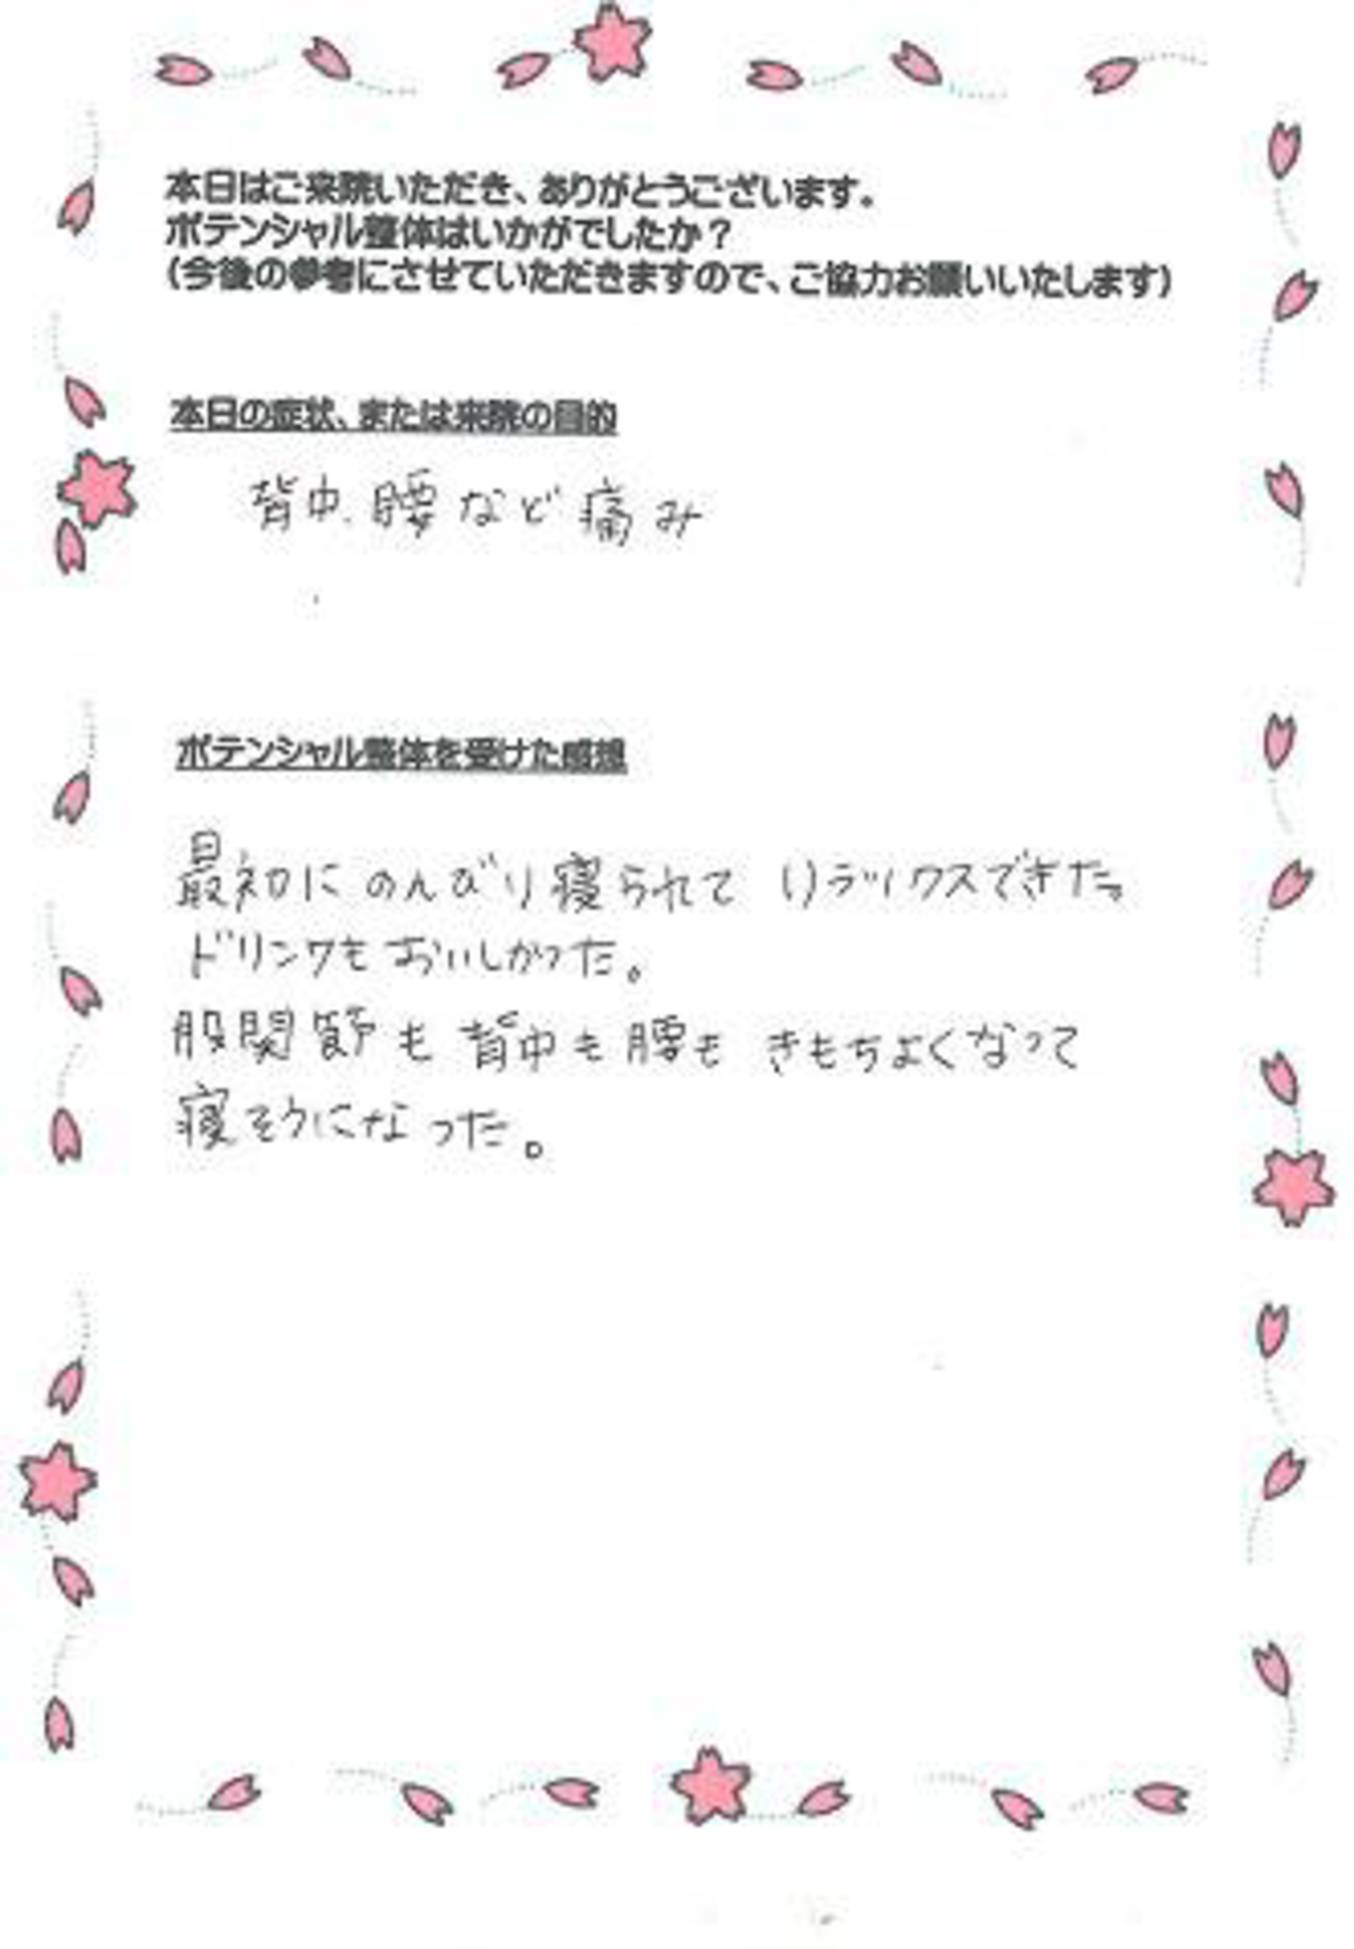 本日はご来院いただき、ありがとうございます。
ポテンシャル整体はいかがでしたか？
（今後の参考にさせていただきますので、ご協力お願いいたします）
本日の症状、または来院の目的
背中、腰など痛み
ポテンシャル整体を受けた感想
最初にのんびり寝られて リラックスできた。
ドリンクもおいしかった。
股関節も 背中も腰も きもちよくなって
寝そうになった。